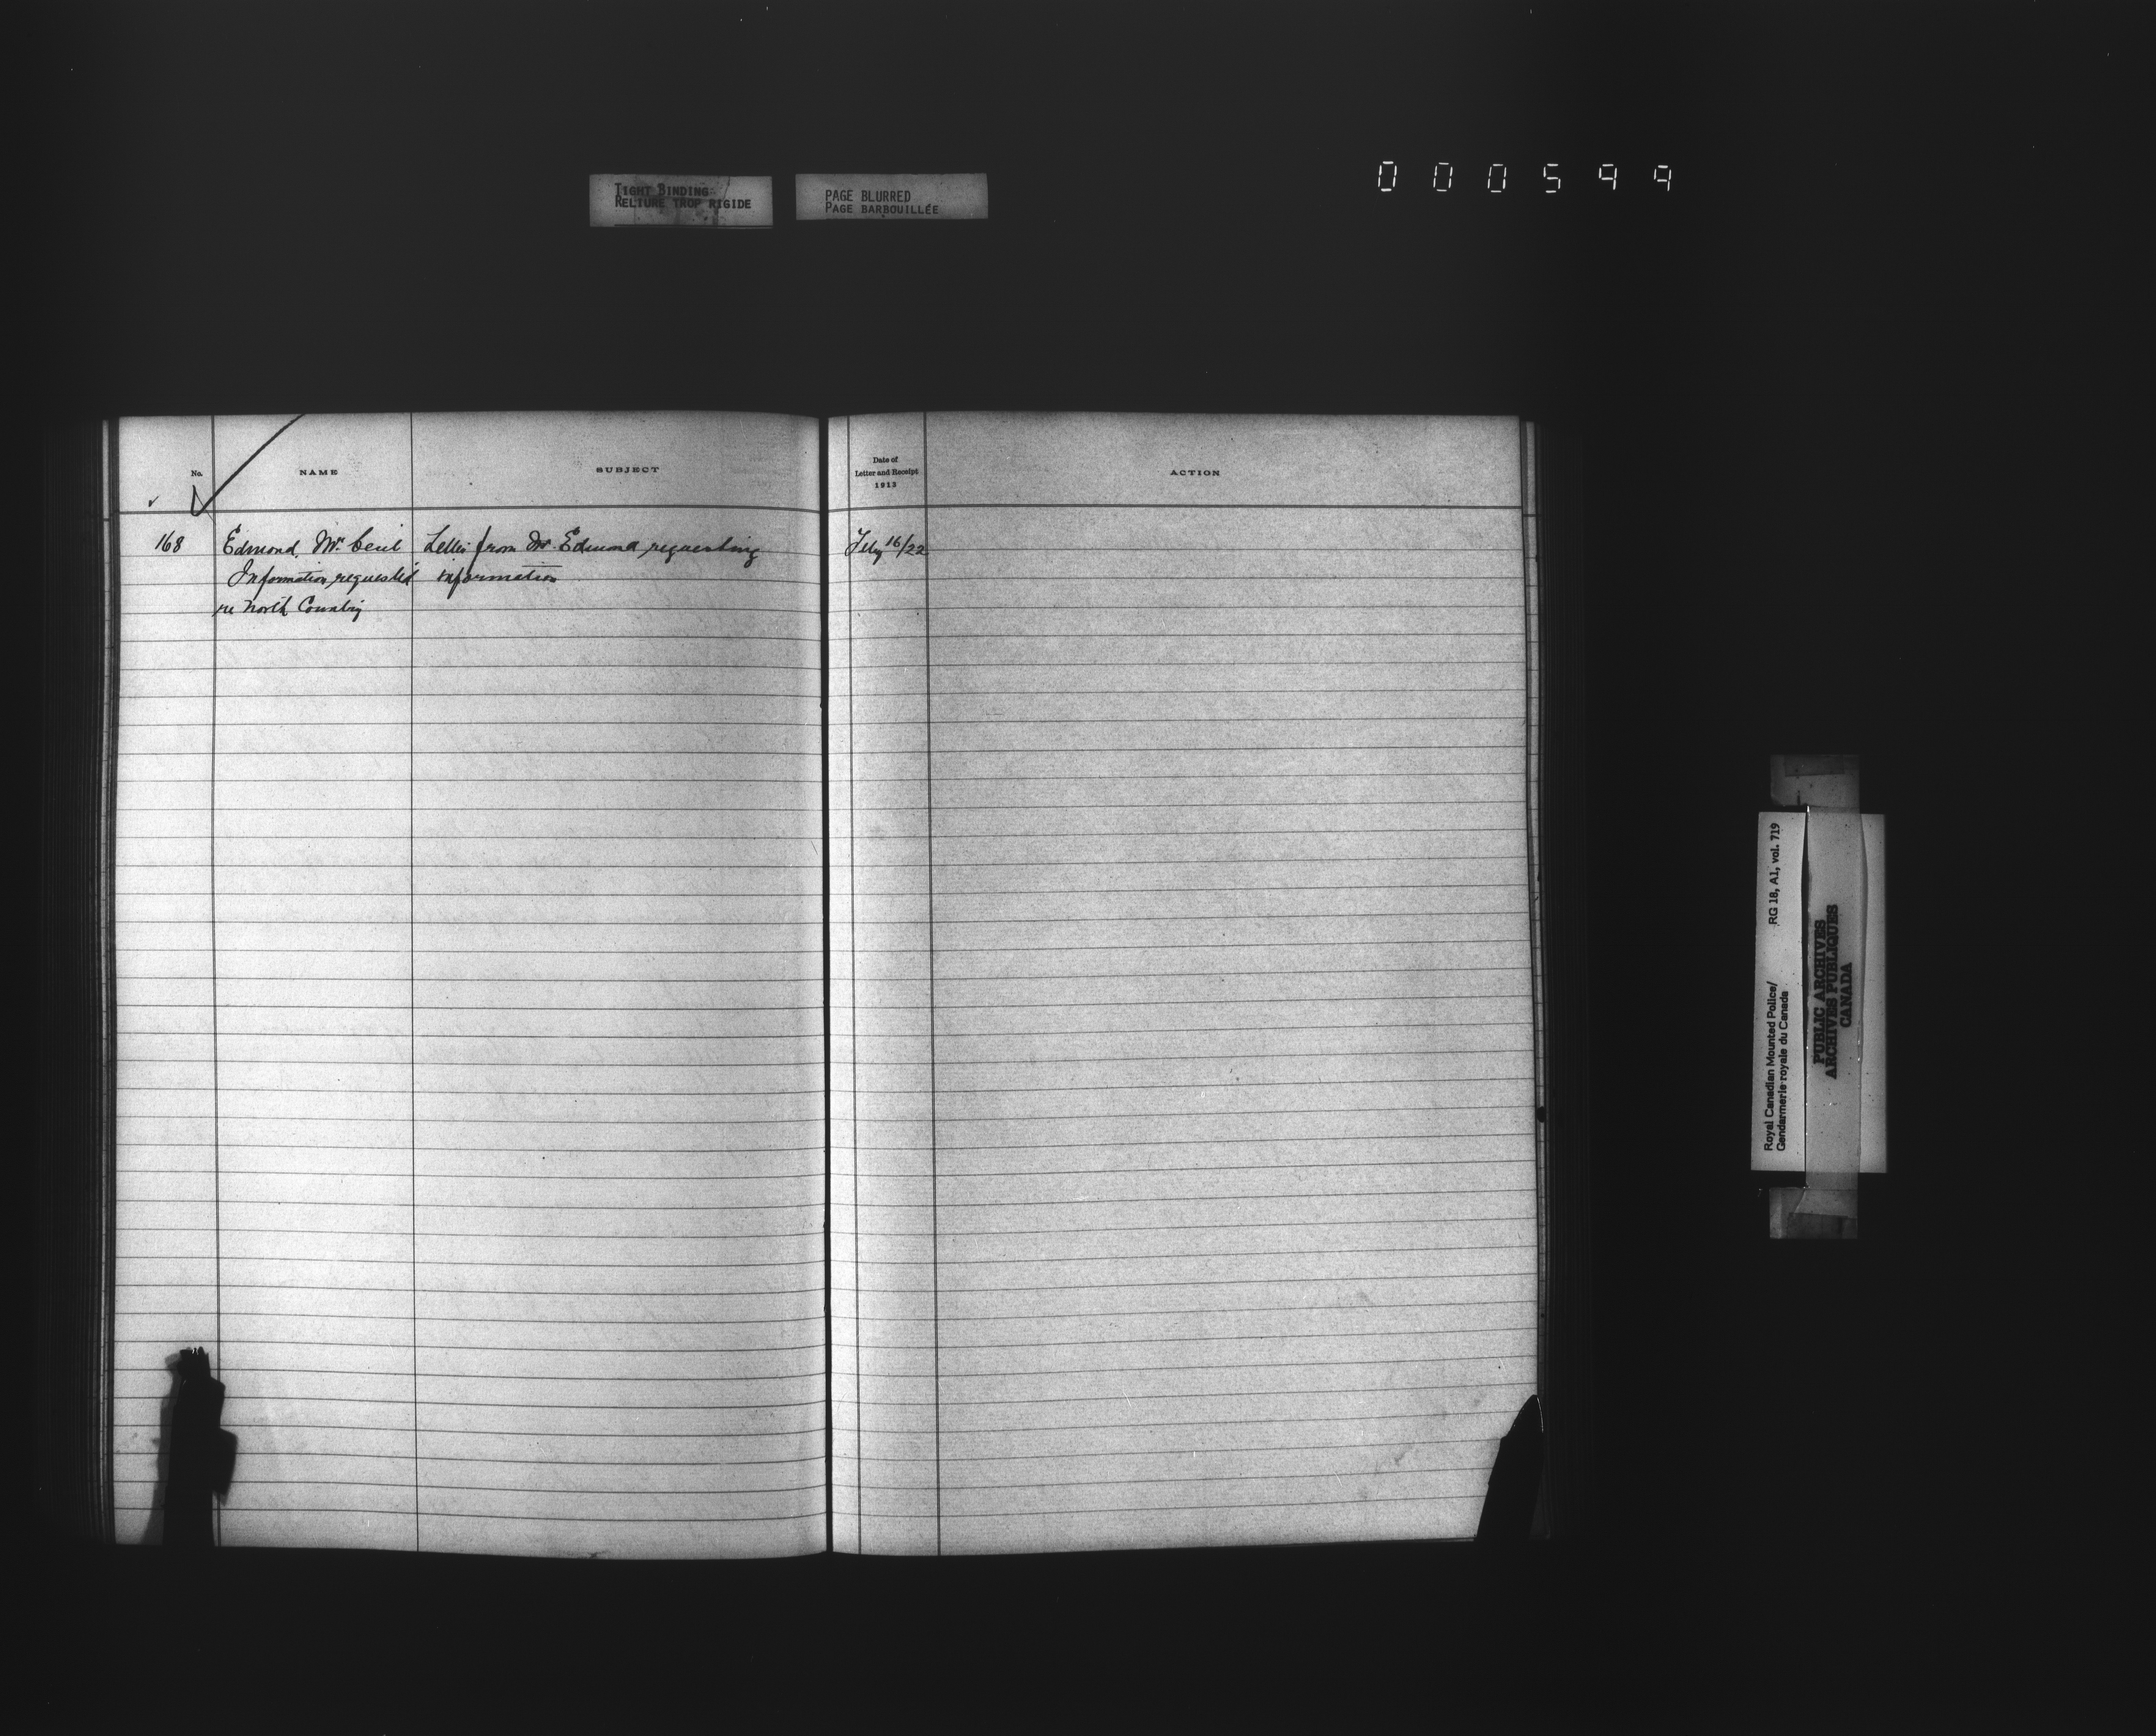 TIGHT BINDING
RELIURE TROP RIGIDE
PAGE BLURRED
PAGE BARBOUILLÉE
000599
No.
NAME
SUBJECT
Date of
Letter and Receipt
1913
ACTION
168 Edmond, Mr. Cecil Letter from Mr. Edmond requesting Feby 16/22
Information requested information
re North Country
Royal Canadian Mounted Police/ RG 18, A1, vol. 719
Gendarmerie royale du Canada
PUBLIC ARCHIVES
ARCHIVES PUBLIQUES
CANADA